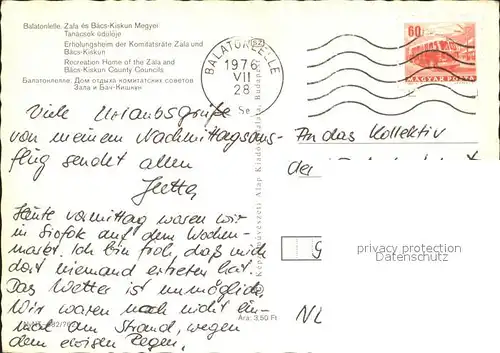 Balatonlelle. Zala és Bács-Kiskun Megyei
Tanácsok üdülője
Erholungsheim der Komitatsräte Zala und
Bács-Kiskun
Recreation Home of the Zala and
Bács-Kiskun County Councils
Балатонлелле. Дом отдыха комитатских советов
Зала и Бач-Кишкун
BALATONLELLE
1976
VII
28
60f
MAGYAR POSTA
Viele Urlaubsgrüße
von meinem Nachmittagsaus-
flug sendet allen
Jutta
Heute vormittag waren wir
in Siofok auf dem Wochen-
markt. Ich bin froh, daß mich
dort niemand ertreten hat.
Das Wetter ist unmöglich.
Wir waren noch nicht ein-
mal am Strand, wegen
dem ewigen Regen.
Képzőművészeti Alap Kiadóvállalata, Budapest
Ára: 3,50 Ft
An das Kollektiv
der
privacy protection
Datenschutz